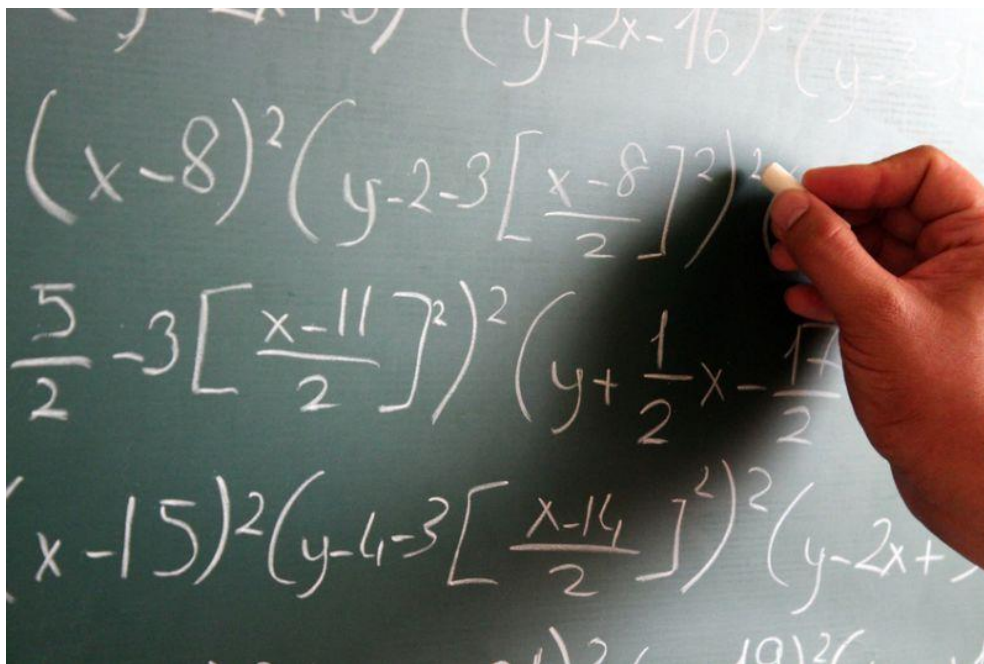 (y+2x-16)² (y
(x-8)² (y-2-3[(x-8)/2]²)²
5/2 -3[(x-11)/2]²)² (y+1/2x-
x-15)² (y-4-3[(x-14)/2]²)² (y-2x+
)² 19)² (